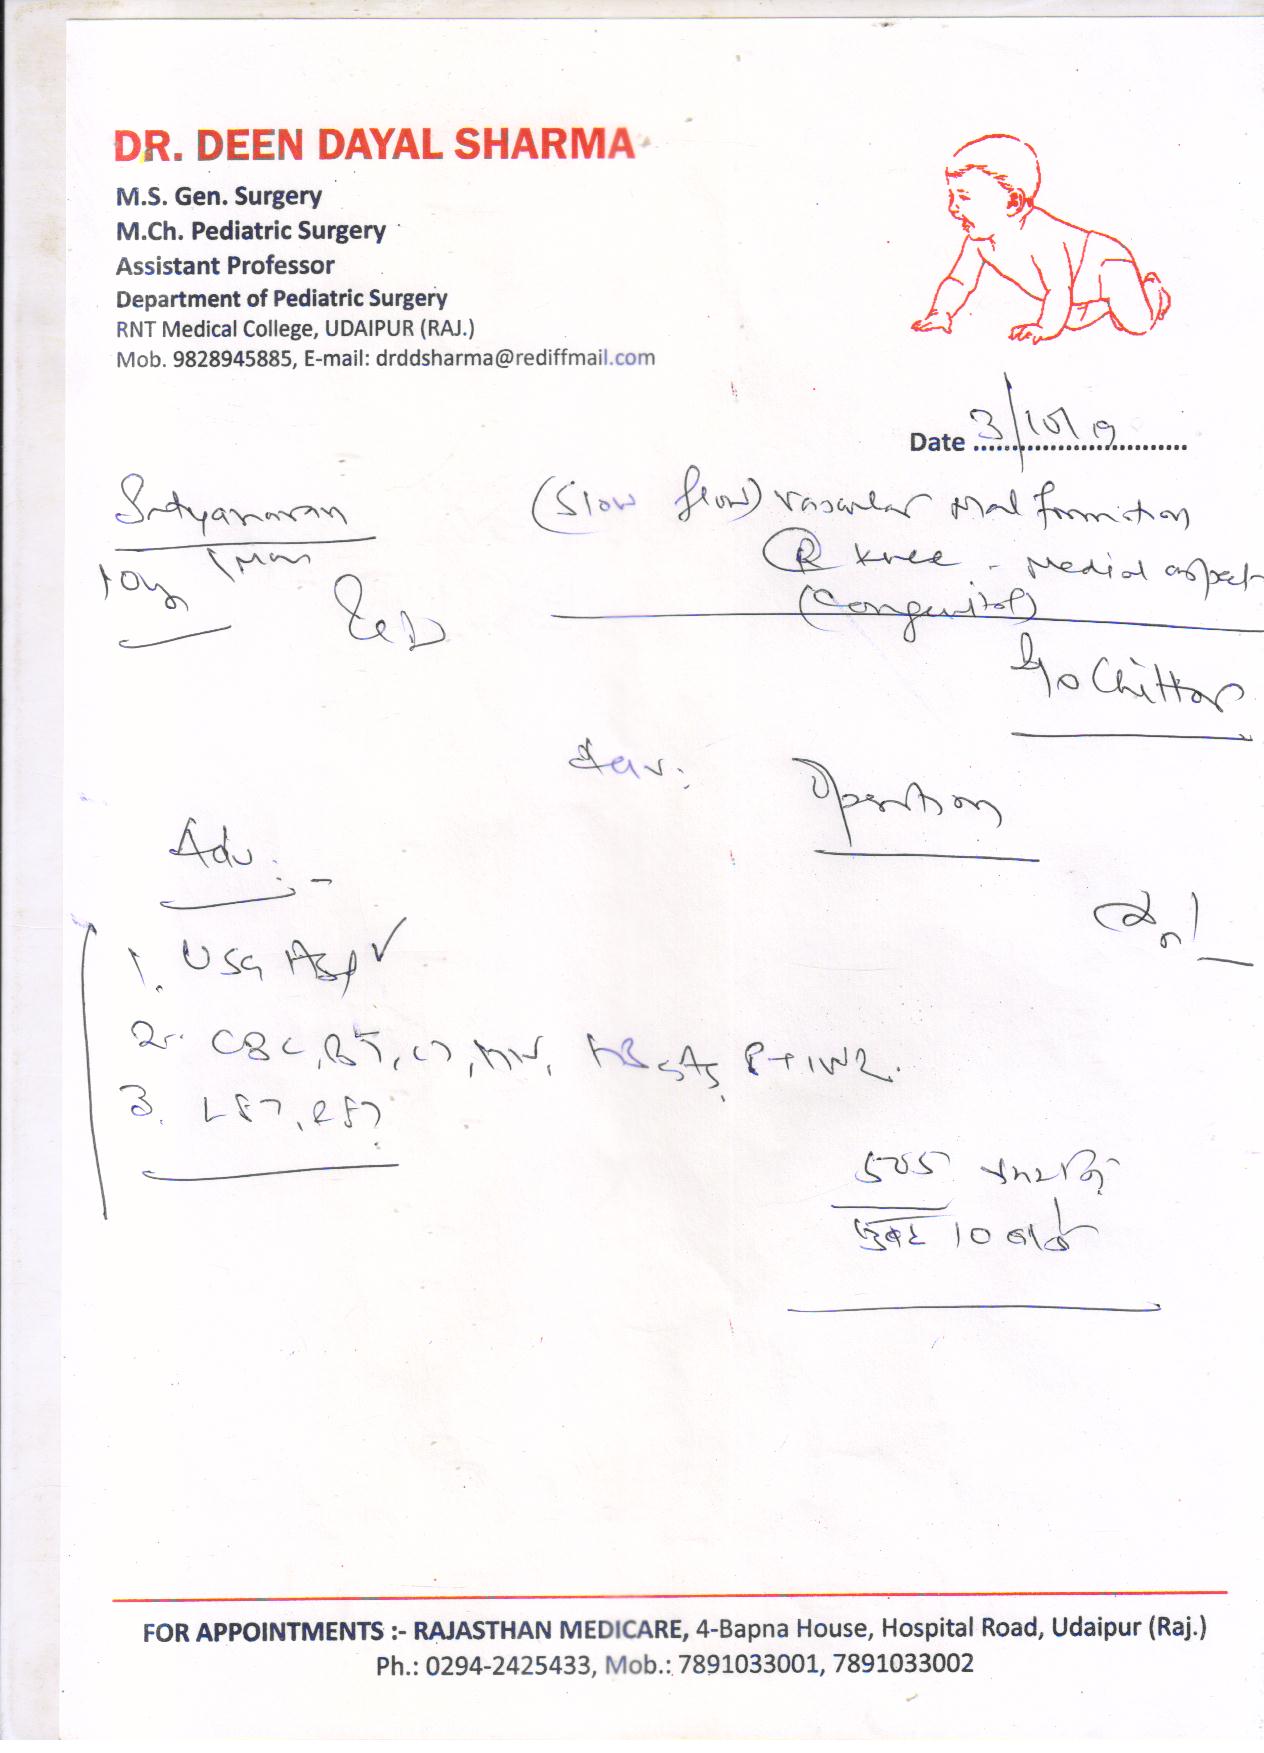 DR. DEEN DAYAL SHARMA
M.S. Gen. Surgery
M.Ch. Pediatric Surgery
Assistant Professor
Department of Pediatric Surgery
RNT Medical College, UDAIPUR (RAJ.)
Mob. 9828945885, E-mail: drddsharma@rediffmail.com
Date 3/10/19
Satyanaran
(Slow flow) vascular malformation
(R) knee - medial aspect
(Congenital)
Chittor
Adv:-
Operation
1. USG ✓
2. CBC, BT, CT, HIV, HBsAg, PT INR.
3. LFT, RFT
505
सुबह 10 बजे
FOR APPOINTMENTS :- RAJASTHAN MEDICARE, 4-Bapna House, Hospital Road, Udaipur (Raj.)
Ph.: 0294-2425433, Mob.: 7891033001, 7891033002